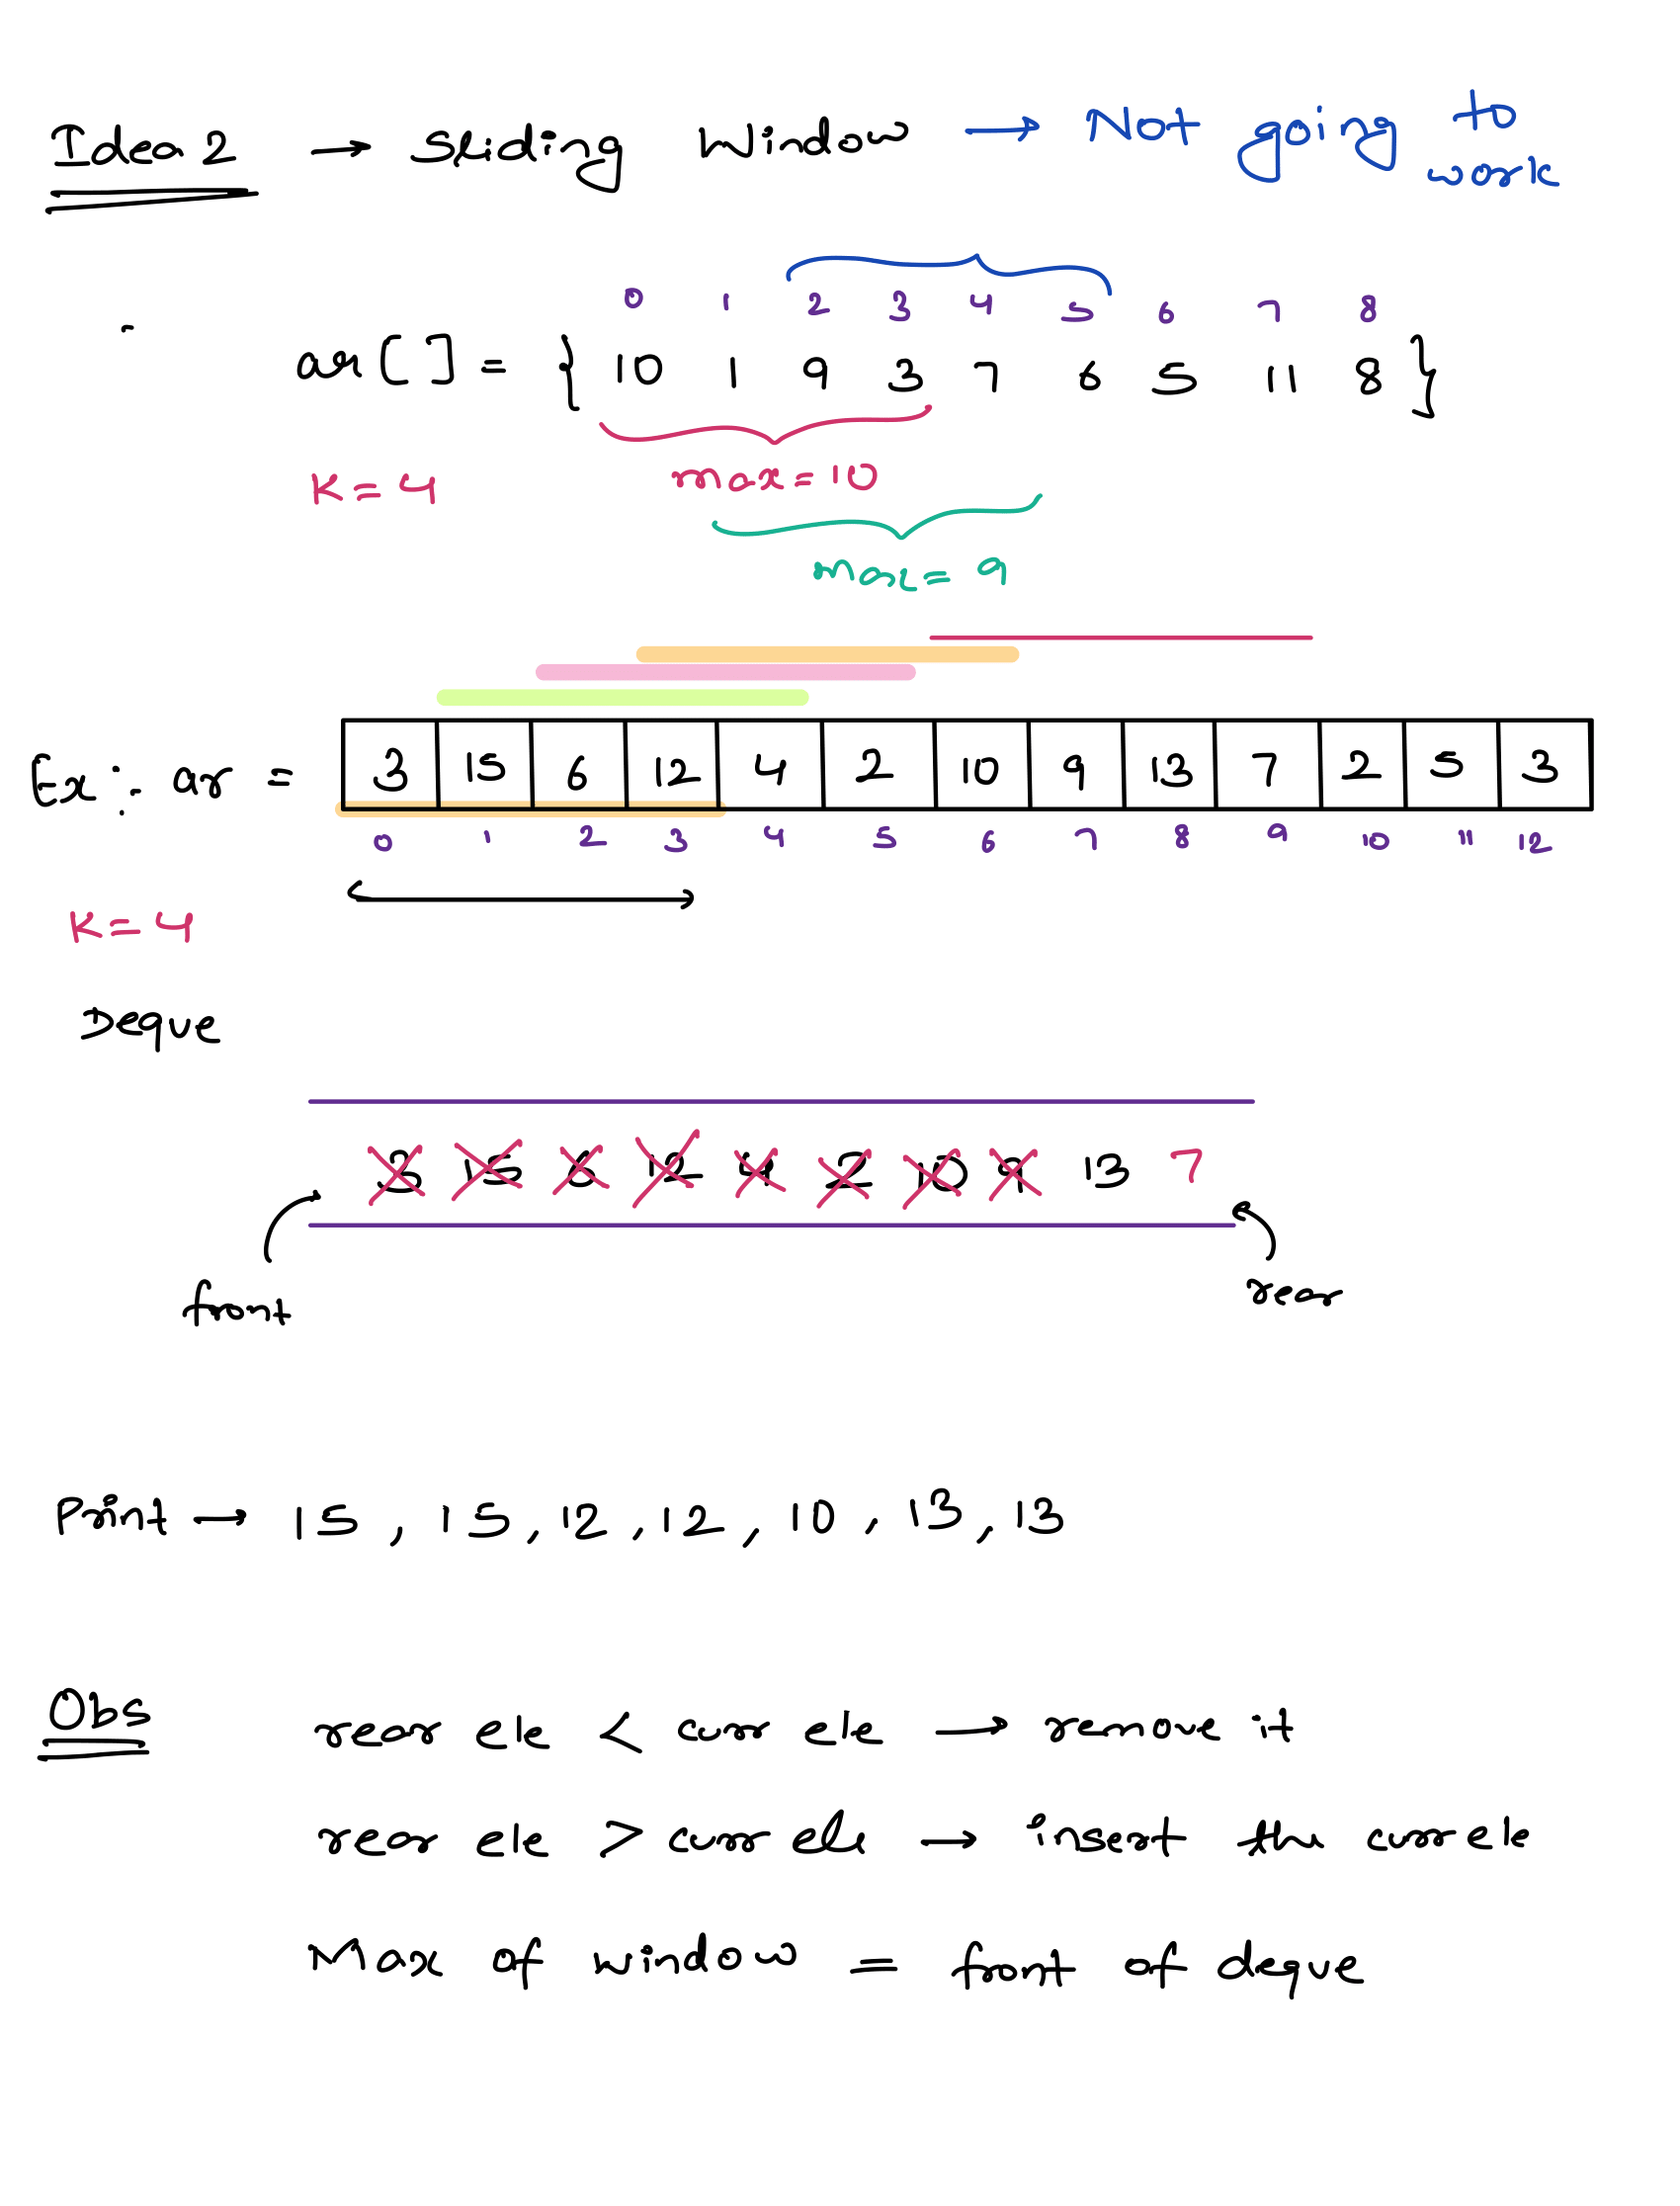 Idea 2 → Sliding Window → Not going to
work
0 1 2 3 4 5 6 7 8
ar[ ] = { 10 1 9 3 7 6 5 11 8 }
K = 4 max = 10
max = 9
Ex:. ar = 3 15 6 12 4 2 10 9 13 7 2 5 3
0 1 2 3 4 5 6 7 8 9 10 11 12
K = 4
Deque
3 15 6 12 4 2 10 9 13 7
front rear
Print → 15, 15, 12, 12, 10, 13, 13
Obs rear ele < curr ele → remove it
rear ele > curr ele → insert the curr ele
Max of window = front of deque